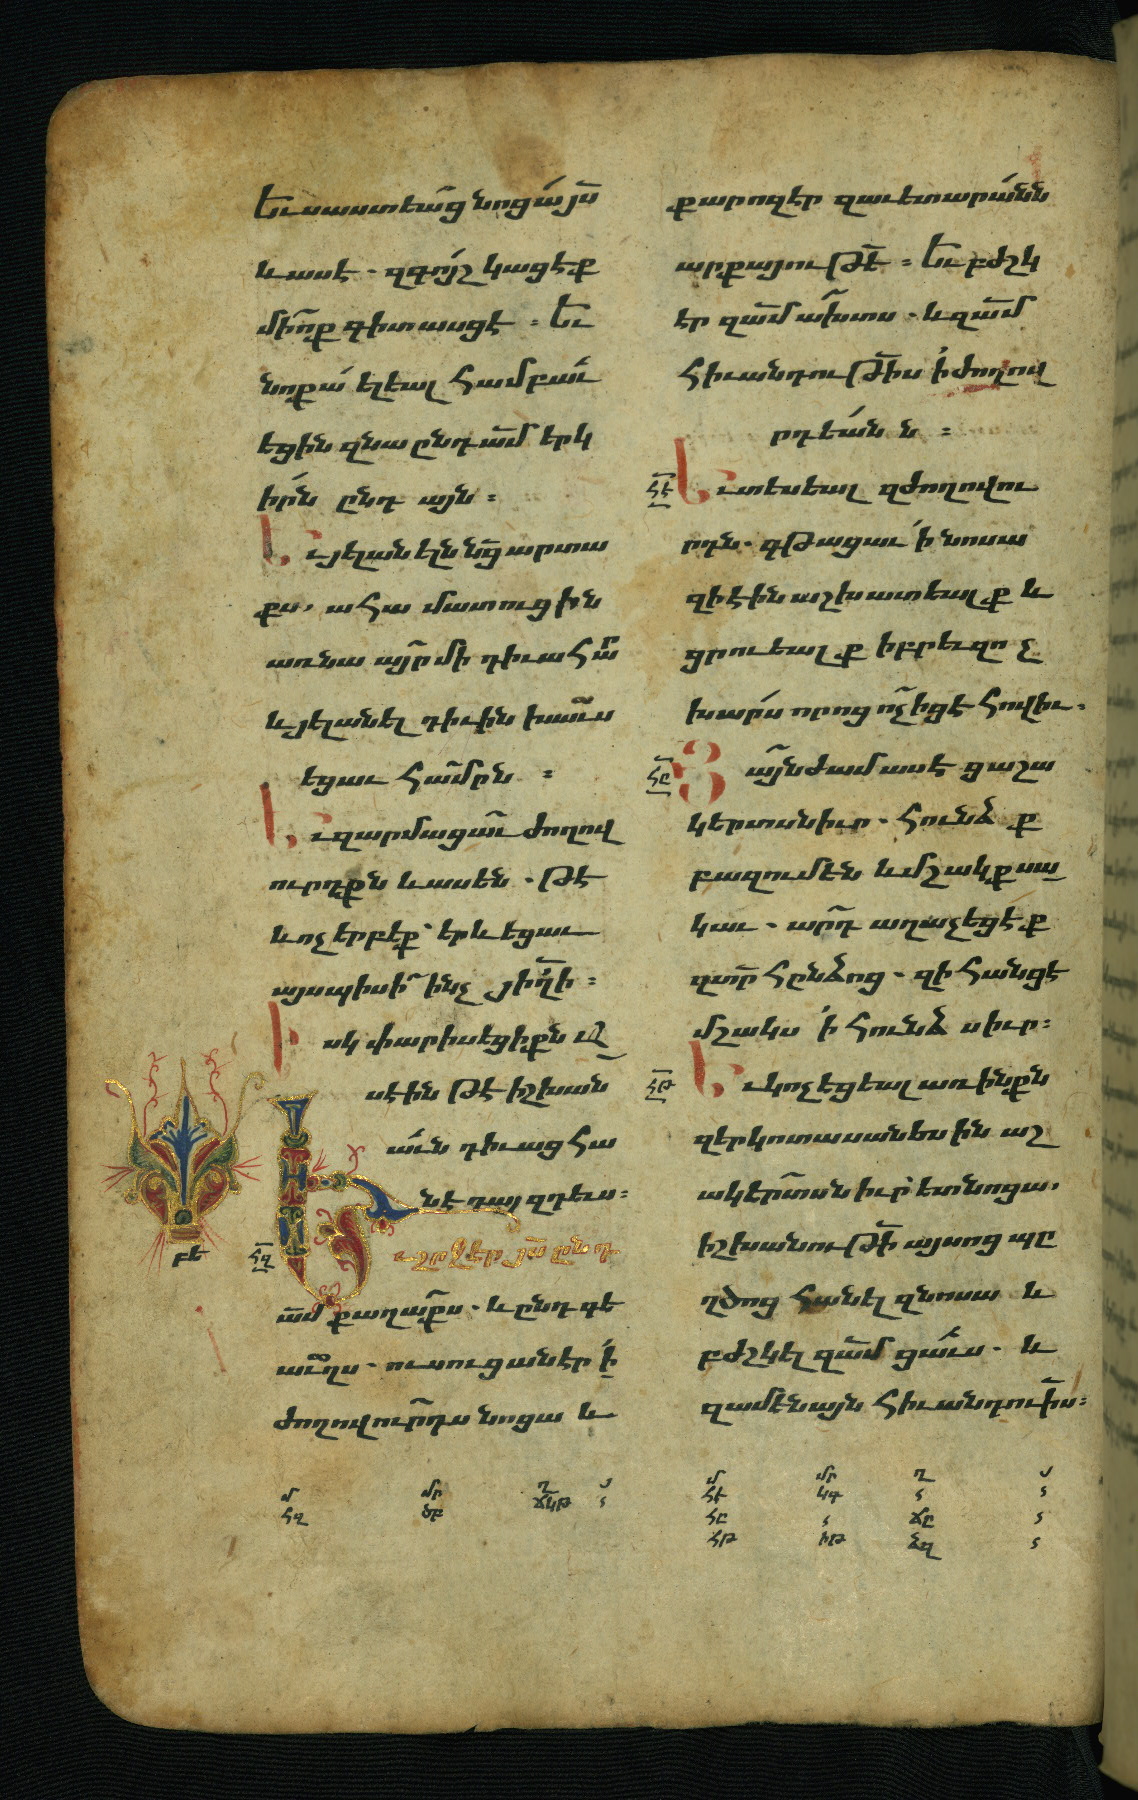 Եւ սաստեաց նոցա յս
և ասէ. զգոյշ կացէք
մի ոք գիտասցէ։ Եւ
նոքա ելեալ համբաւ
եցին զնա ընդ ամ երկ
իրն ընդ այն։
Եւ յելանելն նց արտա
քս, ահա մատուցին
առ նա այր մի դիւահր
և յելանել դիւին խաւս
եցաւ համրն։
Եւ զարմացաւ ժողով
ուրդքն և ասեն. թէ
և ոչ երբէք երևեցաւ
այսպիսի ինչ յիղի։
Իսկ փարիսեցիքն ա
սէին թէ իշխան
աւն դիւաց հա
նէ դայ զդեւս։
բե հզ Եւ շրջէր յս ընդ
ամ քաղաքս. և ընդ գե
աւղս. ուսուցանէր ի
ժողովուրդս նոցա և
մ մր ղ յ
հզ ծբ ճկթ
քարոզէր զաւետարանն
արքայութե։ Եւ բժշկ
էր զամ ախտս. և զամ
հիւանդութիս ի ժողով
րդեանն։
հէ Եւ տեսեալ զժողովու
րդն. գթացաւ ի նոսա
զի էին աշխատեալք և
ցրուեալք իբրեւ զոչ
խարս որոց ոչ իցէ հովիւ.
հը Յայնժամ ասէ ցաշա
կերտսն իւր. հունձք
բազում են և մշակք սա
կաւ. արդ աղաչեցէք
զտր հընձոց. զի հանցէ
մշակս ի հունձ սիւր։
հթ Եւ կոչեցեալ առ ինքն
զերկոտասանեսին աշ
ակերտսն իւր ետ նոցա,
իշխանութի այսոց պը
ղծոց հանել զնոսա և
բժշկել զամ ցաւս. և
զամենայն հիւանդուիս։
մ մր ղ յ
հէ կգ
հը ճը
հթ իթ ձզ